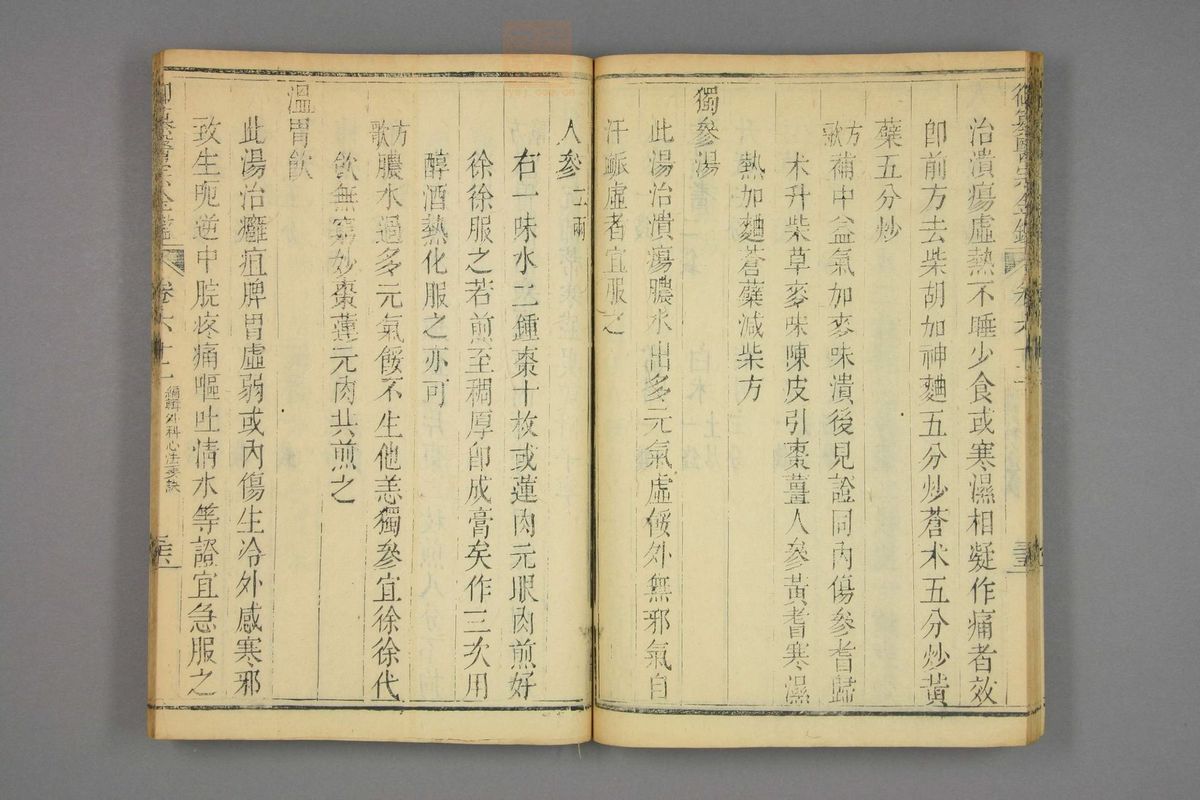 治潰瘍虛熱不睡少食或寒濕相凝作痛者效
卽前方去柴胡加神麯五分炒蒼朮五分炒黃
蘗五分炒
方歌補中益氣加麥味潰後見證同內傷參耆歸
朮升柴草麥味陳皮引棗薑人參黃耆寒濕
熱加麯蒼蘗減柴方
獨參湯
此湯治潰瘍膿水出多元氣虛餒外無邪氣自
汗脈虛者宜服之
人參二兩
右一味水二鍾棗十枚或蓮肉元眼肉煎好
徐徐服之若煎至稠厚卽成膏矣作三次用
醇酒熱化服之亦可
方歌膿水過多元氣餒不生他恙獨參宜徐徐代
飲無窮妙棗蓮元肉共煎之
溫胃飲
此湯治癰疽脾胃虛弱或內傷生冷外感寒邪
致生呃逆中脘疼痛嘔吐情水等證宜急服之
御纂醫宗金鑑 卷六十二 編輯外科心法要訣